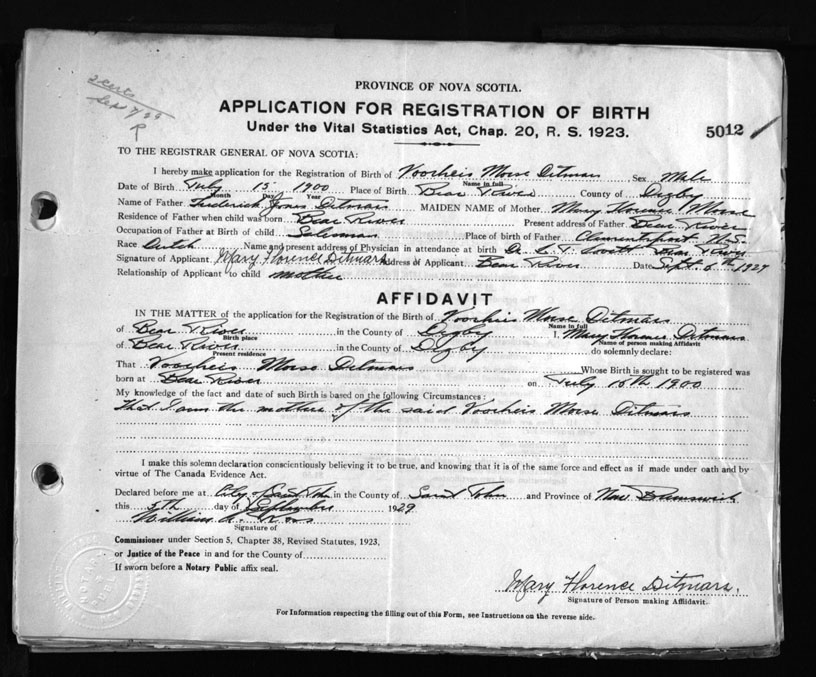 2 Certs
Sep 7/29
R
PROVINCE OF NOVA SCOTIA.
APPLICATION FOR REGISTRATION OF BIRTH
Under the Vital Statistics Act, Chap. 20, R. S. 1923.
5012
TO THE REGISTRAR GENERAL OF NOVA SCOTIA:
I hereby make application for the Registration of Birth of Voorheis Morse Ditmars Sex Male
Name in full
Date of Birth July 15 1900 Place of Birth Bear River County of Digby
Month Day Year
Name of Father Frederick Jones Ditmars MAIDEN NAME of Mother Mary Florence Morse
Residence of Father when child was born Bear River Present address of Father Bear River
Occupation of Father at Birth of child Salesman Place of birth of Father Clementsport N.S.
Race Dutch Name and present address of Physician in attendance at birth Dr. L. J. Bear River
Signature of Applicant Mary Florence Ditmars Address of Applicant Bear River Date Sept. 6th 1929
Relationship of Applicant to child mother
AFFIDAVIT
IN THE MATTER of the application for the Registration of the Birth of Voorheis Morse Ditmars
Name in full
of Bear River in the County of Digby I, Mary Florence Ditmars
Birth place Name of person making Affidavit
of Bear River in the County of Digby do solemnly declare:
Present residence
That Voorheis Morse Ditmars Whose Birth is sought to be registered was
born at Bear River on July 15th 1900
My knowledge of the fact and date of such Birth is based on the following Circumstances:
That I am the mother of the said Voorheis Morse Ditmars
I make this solemn declaration conscientiously believing it to be true, and knowing that it is of the same force and effect as if made under oath and by
virtue of The Canada Evidence Act.
Declared before me at City of Saint John in the County of Saint John and Province of New Brunswick
this 5th day of September 1929
William R. Ross
Signature of
Commissioner under Section 5, Chapter 38, Revised Statutes, 1923,
or Justice of the Peace in and for the County of
If sworn before a Notary Public affix seal.
Mary Florence Ditmars.
Signature of Person making Affidavit.
For Information respecting the filling out of this Form, see Instructions on the reverse side.